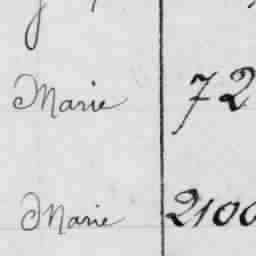 Marie 72
Marie 2100